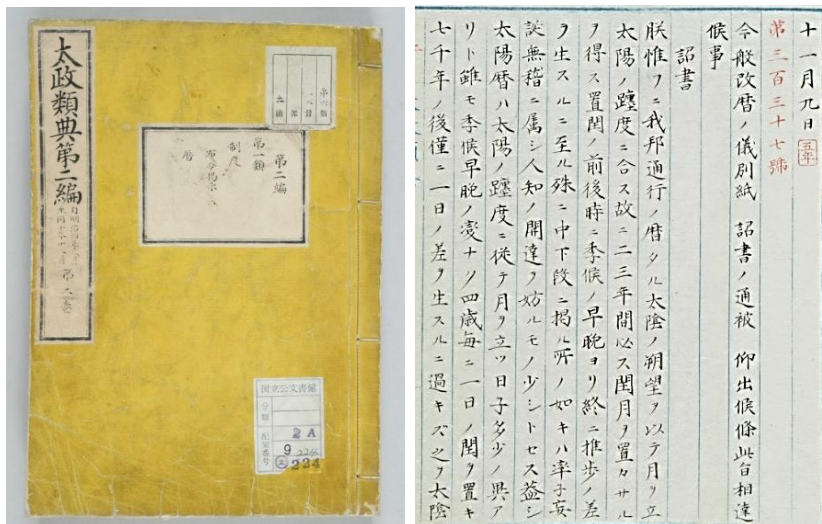 太政類典第二編
第二巻
第二編
第一類
制度
暦
国立公文書館
分類
配架番号
2A
9
224
十一月九日 五年
第三百三十七號
今般改暦ノ儀別紙 詔書ノ通被 仰出候條此旨相達
候事
詔書
朕惟フニ我邦通行ノ暦タル太陰ノ朔望ヲ以テ月ヲ立
太陽ノ躔度ニ合ス故ニ二三年間必ス閏月ヲ置カサル
ヲ得ス置閏ノ前後時ニ季候ノ早晩ヨリ終ニ推歩ノ差
ヲ生スルニ至ル殊ニ中下段ニ掲ル所ノ如キハ率子妄
誕無稽ニ属シ人知ノ開達ヲ妨ルモノ少シトセス蓋シ
太陽暦ハ太陽ノ躔度ニ從テ月ヲ立ツ日子多少ノ異ア
リト雖モ季候早晩ノ變ナク四歳毎ニ一日ノ閏ヲ置キ
七千年ノ後僅ニ一日ノ差ヲ生スルニ過キス之ヲ太陰